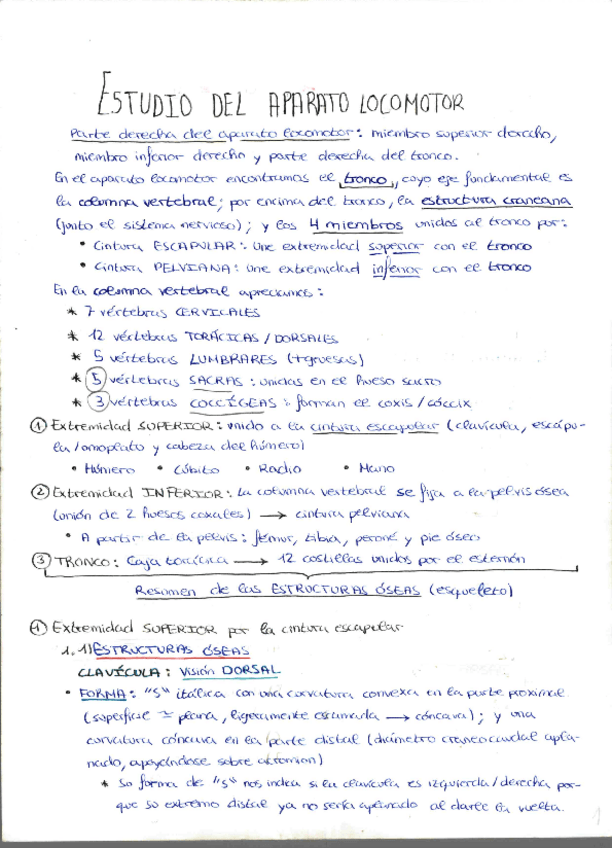 ESTUDIO DEL APARATO LOCOMOTOR
Parte derecha del aparato locomotor: miembro superior derecho,
miembro inferior derecho y parte derecha del tronco.
En el aparato locomotor encontramos el tronco, cuyo eje fundamental es
la columna vertebral; por encima del tronco, la estructura craneana
(junto el sistema nervioso); y los 4 miembros unidos al tronco por:
• Cintura ESCAPULAR: Une extremidad superior con el tronco
• Cintura PELVIANA: Une extremidad inferior con el tronco
En la columna vertebral apreciamos:
* 7 vértebras CERVICALES
* 12 vértebras TORÁCICAS / DORSALES
* 5 vértebras LUMBRARES (+gruesas)
* 5 vértebras SACRAS: unidas en el hueso sacro
* 3 vértebras COCCÍGEAS: forman el coxis / cóccix
① Extremidad SUPERIOR: unido a la cintura escapular (clavícula, escápu-
la/omoplato y cabeza del húmero)
• Húmero • Cúbito • Radio • Mano
② Extremidad INFERIOR: La columna vertebral se fija a la pelvis ósea
(unión de 2 huesos coxales) → cintura pelviana
• A partir de la pelvis: fémur, tibia, peroné y pie óseo
③ TRONCO: Caja torácica → 12 costillas unidos por el esternón
Resumen de las ESTRUCTURAS ÓSEAS (esqueleto)
① Extremidad SUPERIOR por la cintura escapular
1.1) ESTRUCTURAS ÓSEAS
CLAVÍCULA: Visión DORSAL
• FORMA: "S" itálica con una curvatura convexa en la parte proximal
(superficie ≃ plana, ligeramente → cóncava); y una
curvatura cóncava en la parte distal (diámetro craneocaudal apla-
nado, apoyándose sobre akromion)
* Su forma de "S" nos indica si la clavícula es izquierda/derecha por-
que su extremo distal ya no sería aplanado al darle la vuelta.